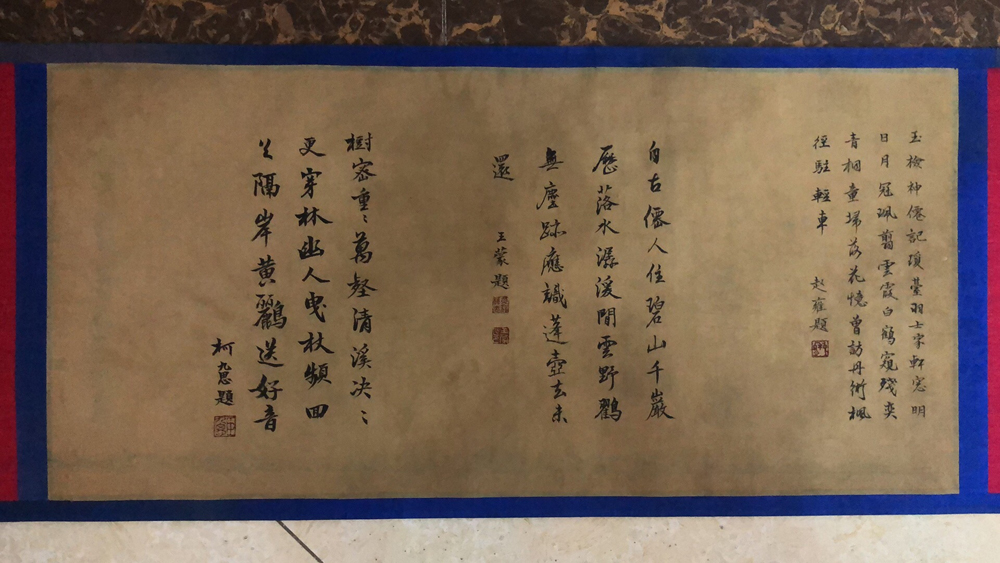 玉檢神僊記瓊臺羽士家軒窓明
日月冠珮翦雲霞白鶴窺殘奕
青桐童埽落花憶曾訪丹術楓
徑駐輕車
趙雍題
自古僊人住碧山千巖
歷落水潺湲閒雲野鸛
無塵跡應識蓬壺去未
還
王蒙題
樹密重〻萬壑清溪決〻
更穿林幽人曳杖頻回
首隔岸黃鸝送好音
柯九思題